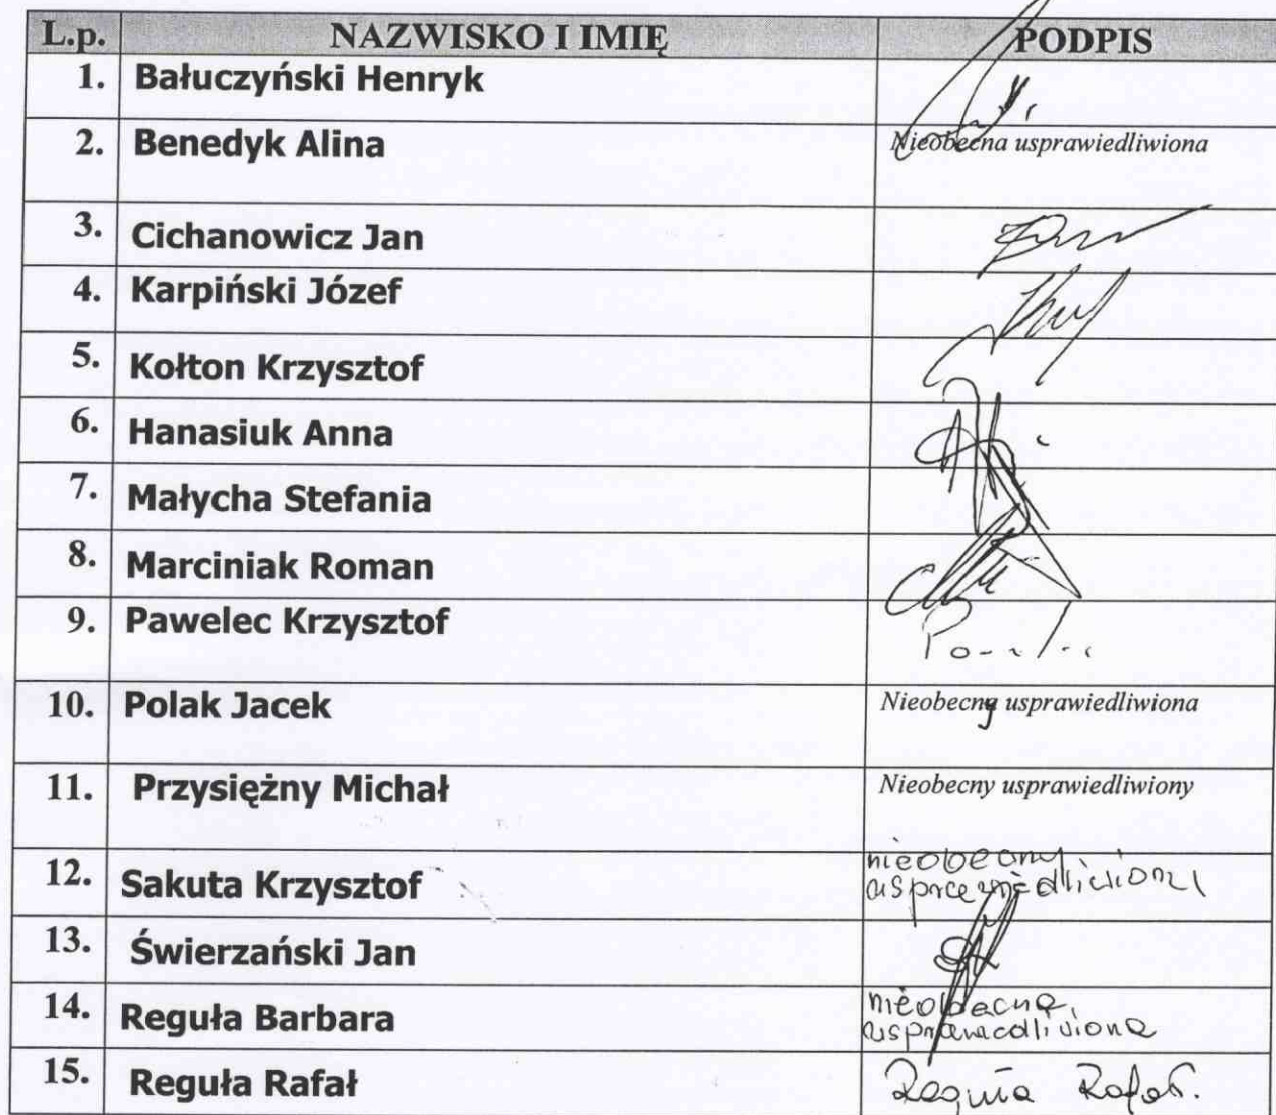 L.p. NAZWISKO I IMIĘ PODPIS
1. Bałuczyński Henryk
2. Benedyk Alina Nieobecna usprawiedliwiona
3. Cichanowicz Jan
4. Karpiński Józef
5. Kołton Krzysztof
6. Hanasiuk Anna
7. Małycha Stefania
8. Marciniak Roman
9. Pawelec Krzysztof
10. Polak Jacek Nieobecny usprawiedliwiona
11. Przysiężny Michał Nieobecny usprawiedliwiony
12. Sakuta Krzysztof nieobecny
usprawiedliwiony
13. Świerzański Jan
14. Reguła Barbara nieobecna
usprawiedliwiona
15. Reguła Rafał Reguła Rafał.